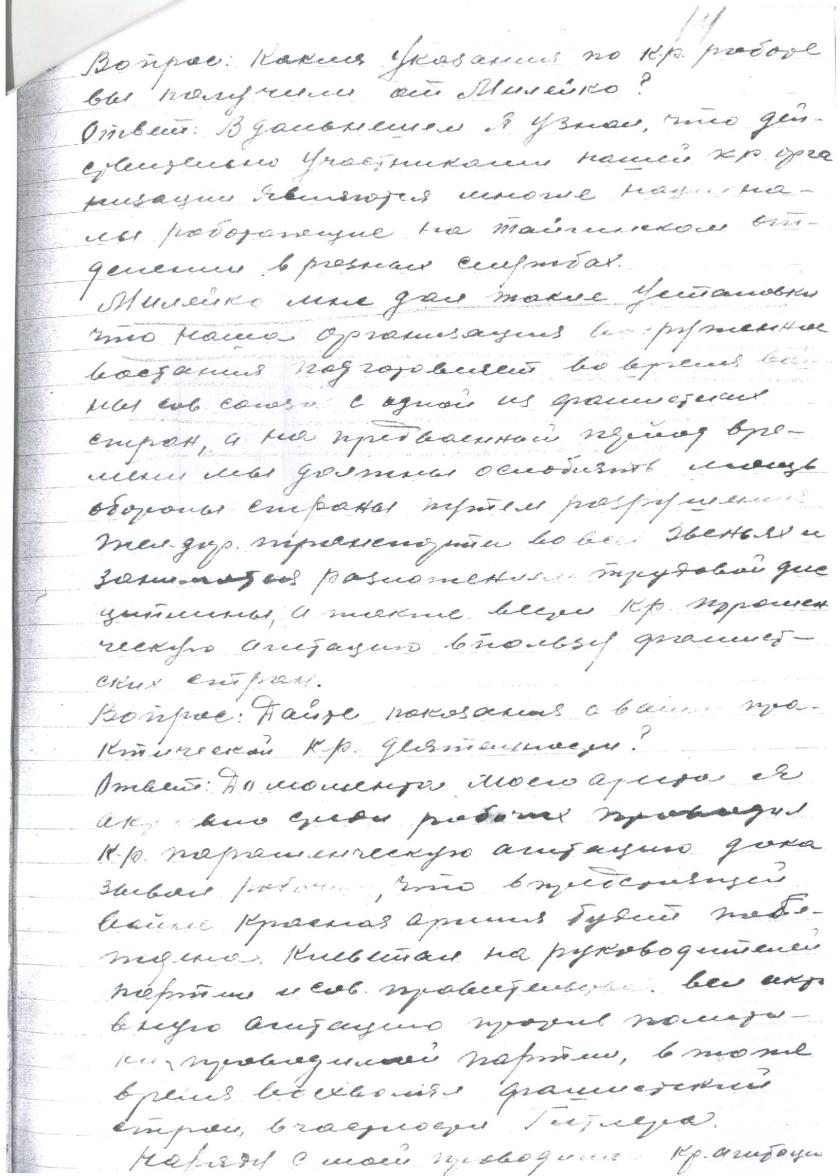 14
Вопрос: Какия указания по к.р. работе
вы получили от Милейко?
Ответ: В дальнейшем я узнал, что дей-
ствительно участниками нашей к.р. орга
низации являются многие национа-
лы работающие на Тайгинском от-
делении в разных службах.
Милейко мне дал такие установки
что наша организация вооруженное
востания подготовляет во время вой
ны сов. союза с одной из фашистских
стран, а на предвоенный период вре-
мени мы должны ослоблять мощь
обороны страны путем разрушения
жел.дор. транспорта во всех звеньях и
заниматся разложением трудовой дис
циплины, а также вести к.р. поражен
ческую агитацию в пользу фашист-
ских стран.
Вопрос: Дайте показания о вашей пра-
ктической к.р. деятельности?
Ответ: До момента моего ареста я
активно среди рабочих проводил
к.р. пораженческую агитацию дока
зывал рабочим, что в предстоящей
войне Красная армия будет побе-
ждена. Клеветал на руководителей
партии и сов. правительства. вел акти
вную агитацию против полити-
ки проводимой партии, в тоже
время восхвалял фашистский
стран, в частности Гитлера.
Наряду с моей проводимой к.р. агитаци